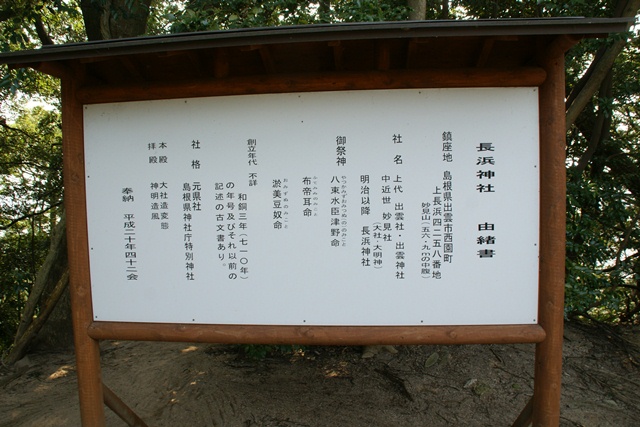 長浜神社 由緒書
鎮座地 島根県出雲市西園町
上長浜四二五八番地
妙見山(一五六・九mの中腹)
社名 上代 出雲社・出雲神社
中近世 妙見社
(大社・大明神)
明治以降 長浜神社
御祭神 八束水臣津野命
布帝耳命
淤美豆奴命
創立年代 不詳
和銅三年(七一〇年)
の年号及びそれ以前の
記述の古文書あり。
社格 元県社
島根県神社庁特別神社
本殿 大社造変態
拝殿 神明造風
奉納 平成二十年四十二会